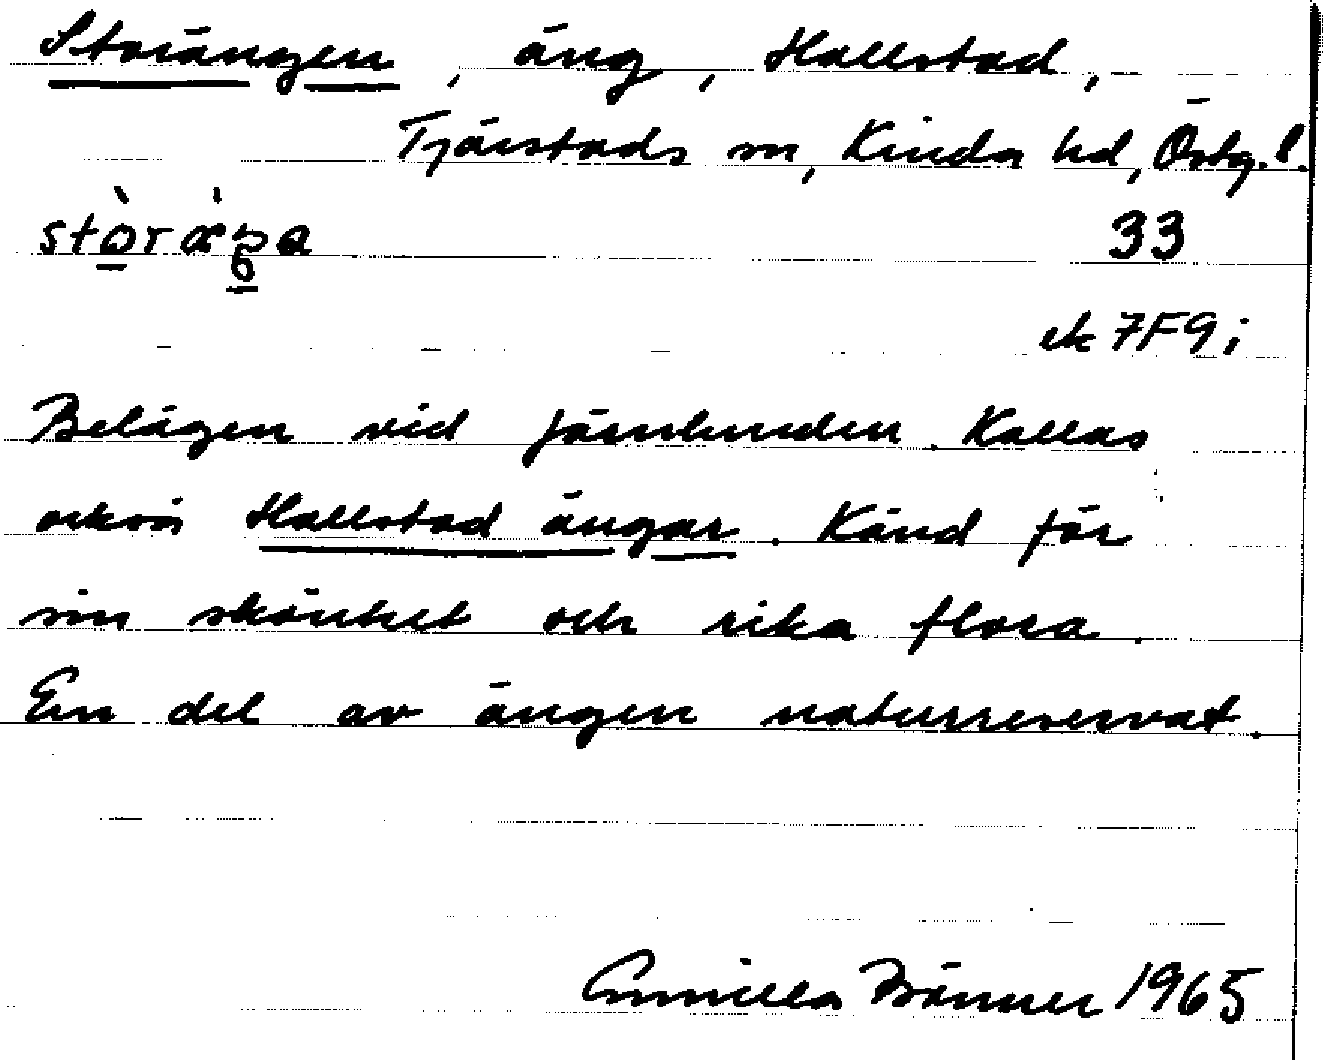 Storängen, äng, Hallstad,
Tjärstads sn, Kinda hd, Östg. l.
33
ek 7F9i
Belägen vid Järnlunden. Kallas
också Hallstad ängar. Känd för
sin skönhet och rika flora.
En del av ängen naturreservat.
Gunilla Bränner 1965